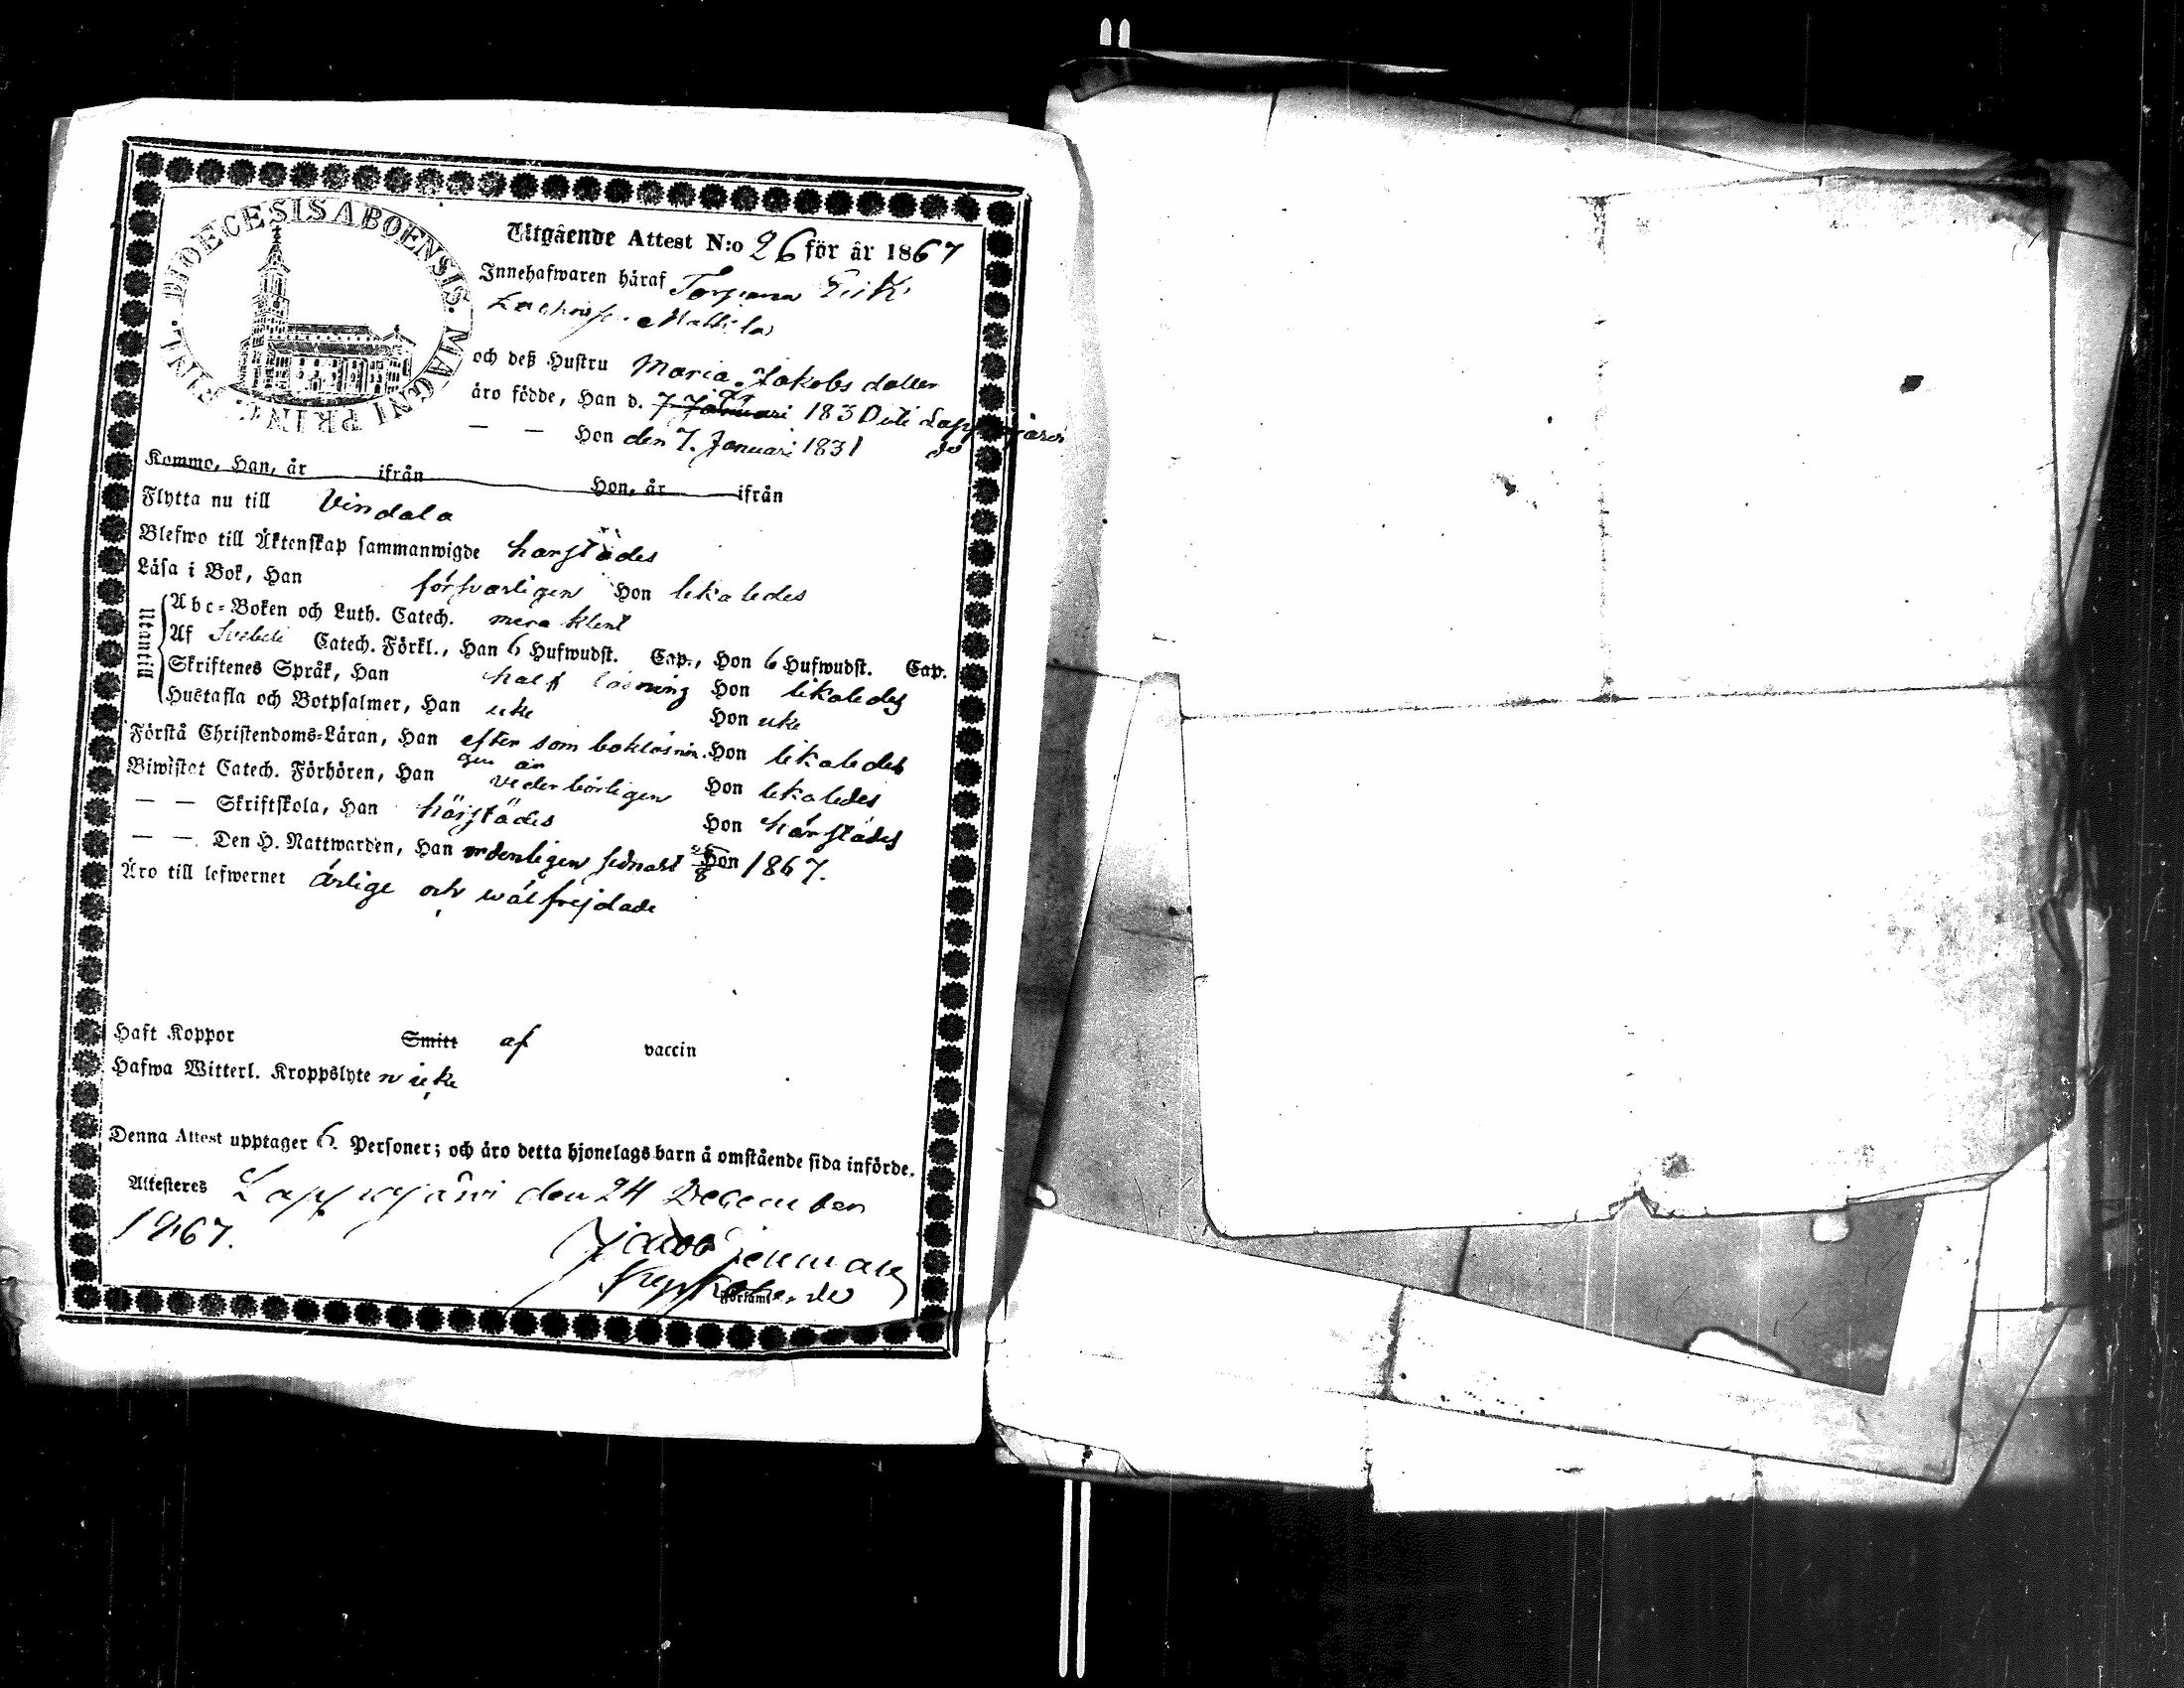 DIOECESIS ABOENSIS. MAGNI PRINC. FINL.
Utgående Attest N:o 26 för år 1867
Innehafwaren häraf Torparen Erik
Mattila
och deß Hustru Maria Jakobs dotter
äro födde, Han d. 7 Januari 1830 uti Lappajärvi
— — Hon den 7. Januari 1831 do
Komme, Han, år ifrån Hon, år ifrån
Flytta nu till Vindala
Blefwo till Äktenskap sammanwigde härstädes
Läsa i Bok, Han försvarligen Hon likaledes
Utantill
Abc-Boken och Luth. Catech. mera klent
Af Svebelii Catech. Förkl., Han 6 Hufwudst. Cap., Hon 6 Hufwudst. Cap.
Skriftenes Språk, Han half läsning Hon likaledes
Hustafla och Botpsalmer, Han icke Hon icke
Förstå Christendoms-Läran, Han efter som bokläsnin- Hon likaledes
gen är
Biwistat Catech. Förhören, Han vederbörligen Hon likaledes
— — Skriftskola, Han härstädes Hon härstädes
— — Den H. Nattwarden, Han ordentligen sednast Hon 1867.
Äro till lefwernet ärlige och wälfrejdade
Haft Koppor Smitt af vaccin
Hafwa Witterl. Kroppslyten icke
Denna Attest upptager 6. Personer; och äro detta hjonelags barn å omstående sida införde.
Attesteres Lappajärvi den 24 December
1867.
Jacob
Församl